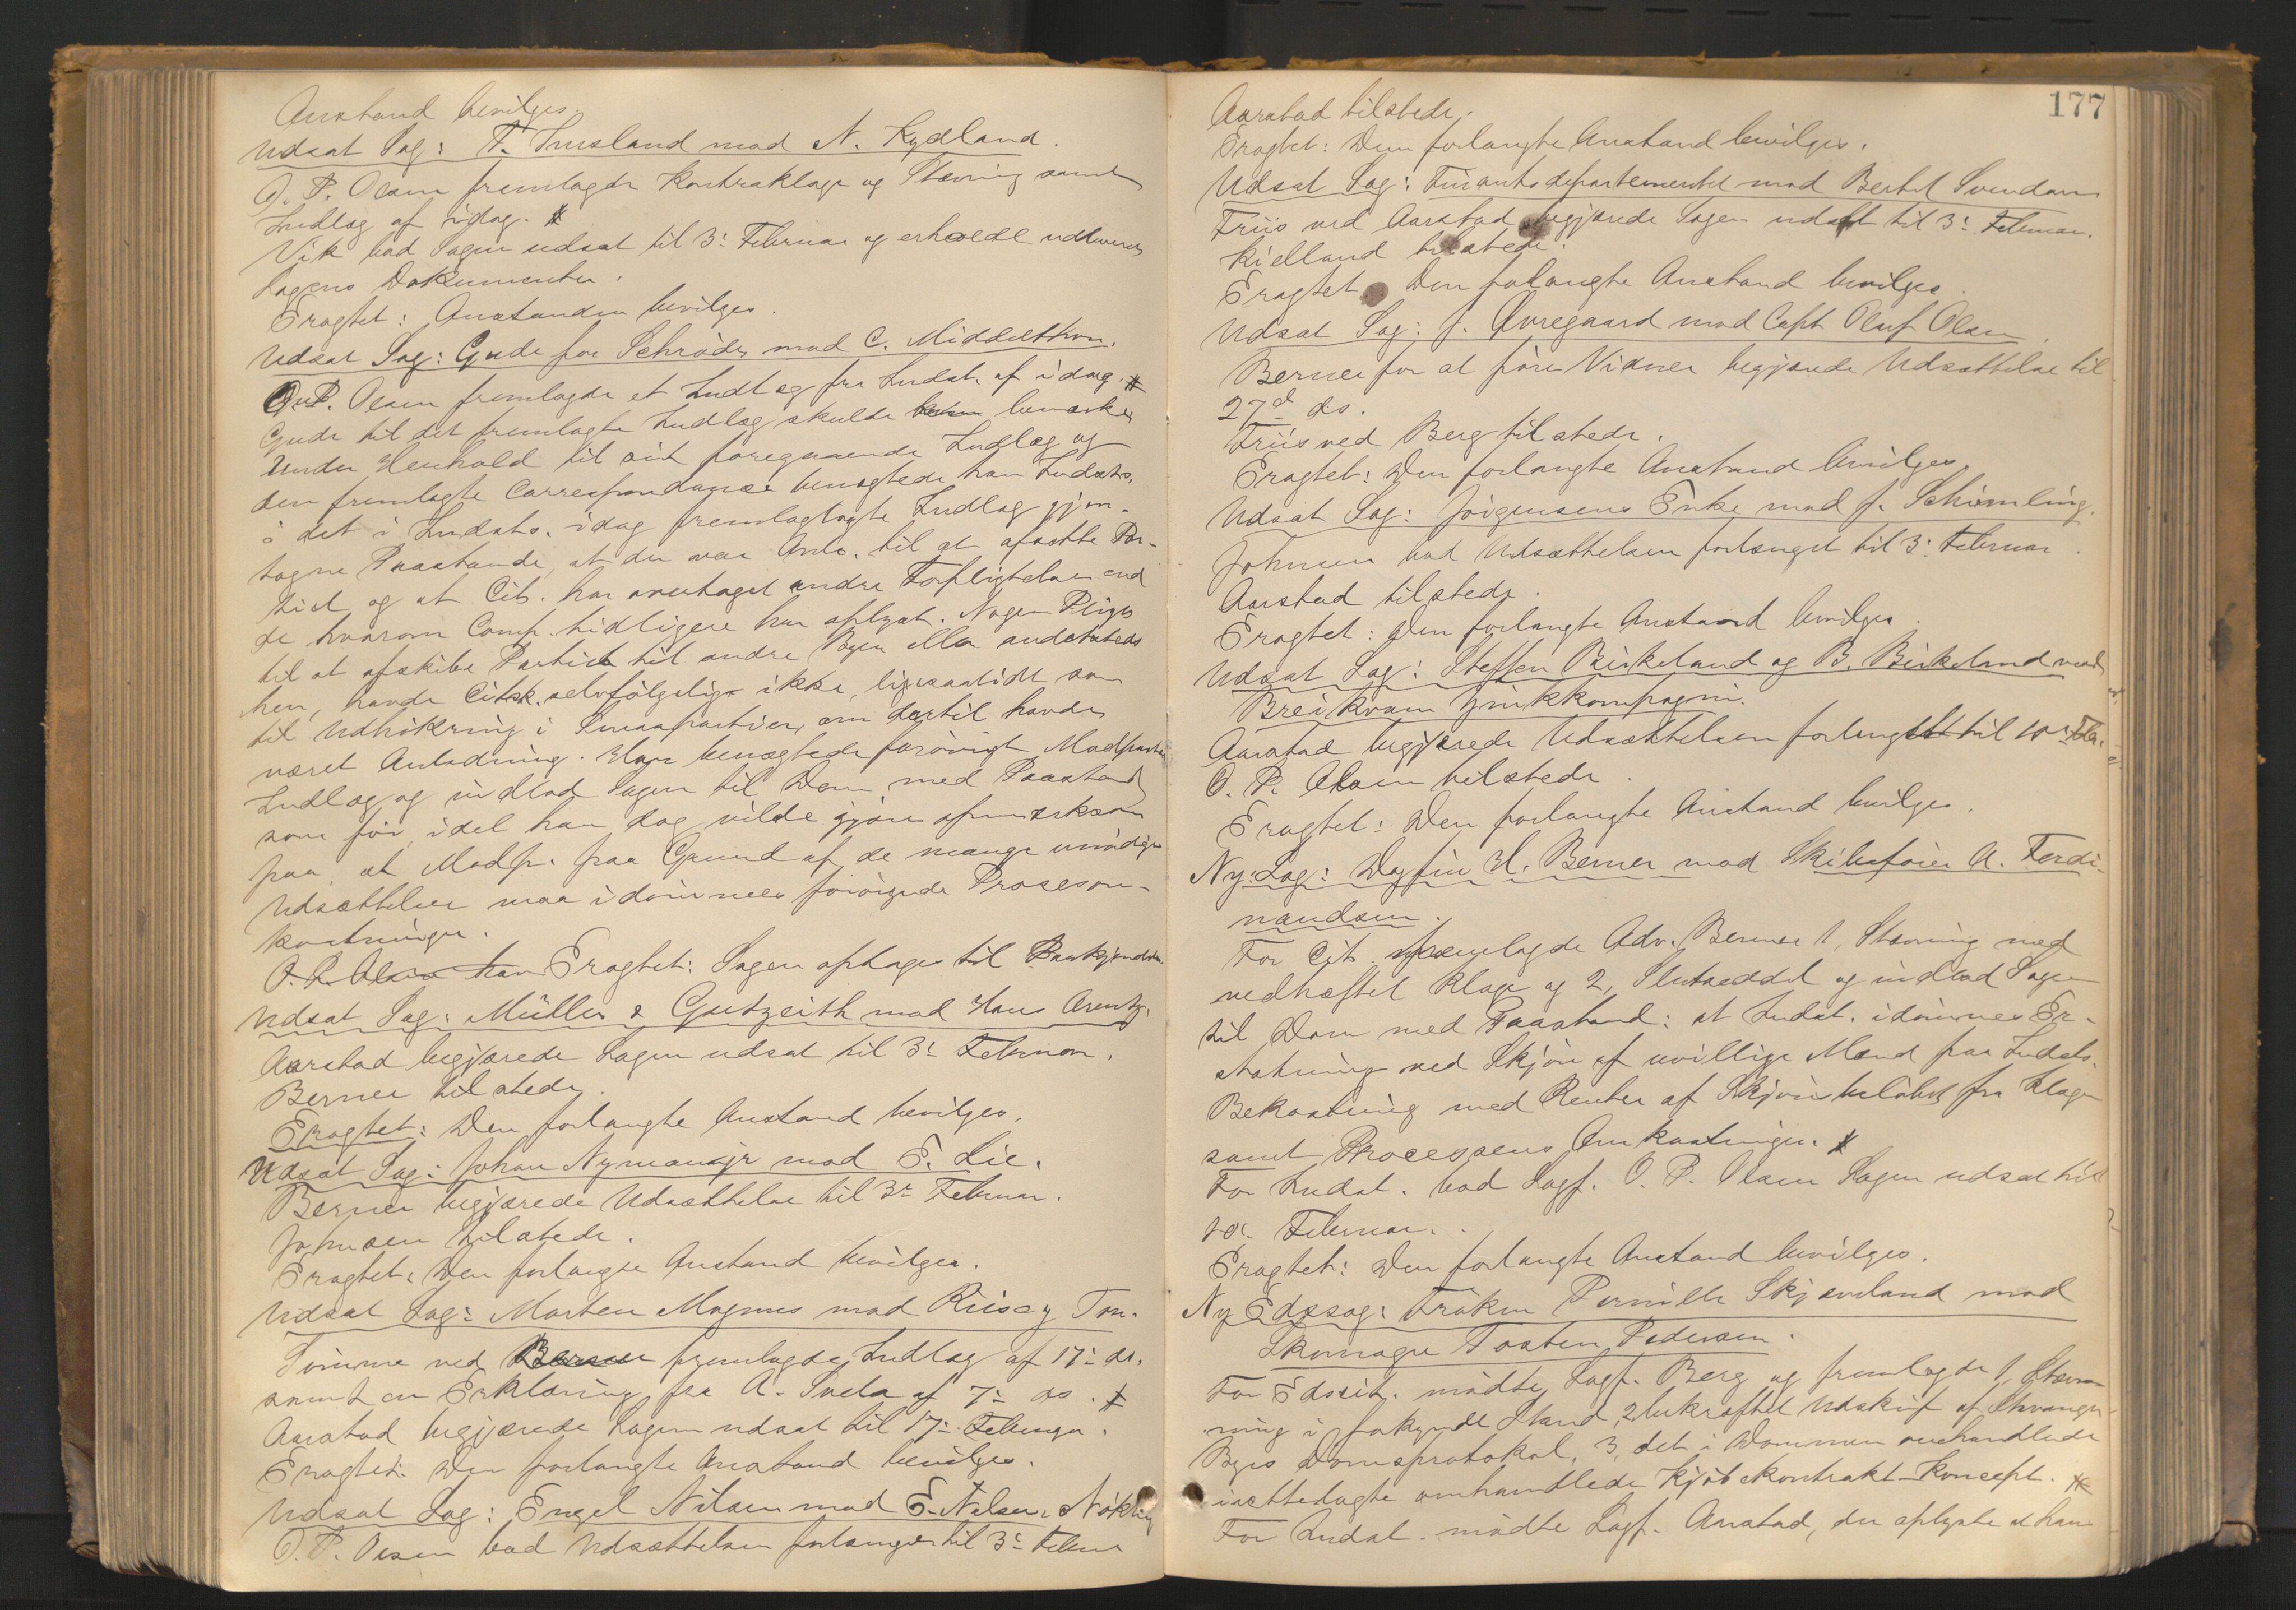 Anstand bevilges.
Udsat Sag: T. Imsland mod N. Kydland.
O. P. Olsen fremlagde Kontraklage og Stævning samt
Indlæg af idag. #
Vik bad Sagen udsat til 3: Februar og erholdt udleveret
Sagens Dokumenter.
Eragtet: Anstanden bevilges.
Udsat Sag: Gude for Schrøder mod C. Middelthon.
O. P. Olsen fremlagde et Indlæg fra Indst. af idag. #
Gude til det fremlagte Indlæg skulde bemærke
Under Henhold til sit foregaaende Indlæg og
den fremlagte Correspondance benægtede han Indsts.
i det i Indsts. idag fremlagte Indlæg gjen-
tagne Paastande, at der var Anl. til at afsætte Par-
tiet og at Cit. har overtaget andre Forpligtelser end
de hvorom Comp. tidligere har oplyst. Nogen Pligt
til at afskibe Partiet til andre Byer eller andetsteds
hen, havde Citsk. selvfølgelig ikke, ligesaalidt som
til Udhökring i Smaapartier, om dertil havde
været Anledning. Han benægtede forøvrigt Modparten
Indlæg og indlod Sagen til Dom med Paastand
som før, idet han dog vilde gjøre opmærksom
paa, at Modp. paa Grund af de mange unødige
Udsættelser maa idømmes forøgede Procesom-
kostninger.
O. P. Olsen har Eragtet: Sagen optages til Paakjendelse.
Udsat Sag: Müller & Gutzeith mod Hans Arentz.
Aarstad begjærede Sagen udsat til 3: Februar.
Berner tilstede.
Eragtet: Den forlangte Anstand bevilges.
Udsat Sag: Johan Nyman jr mod E. Lie.
Berner begjærede Udsættelse til 3: Februar.
Johnsen tilstede.
Eragtet: Den forlangte Anstand bevilges.
Udsat Sag: Morten Magnus mod Riis og Ton.
Sømme ved Berner fremlagde Indlæg af 17: ds.
samt en Erklæring fra A. Svela af 7: ds. #
Aarstad begjærede Sagen udsat til 17: Februar.
Eragtet: Den forlangte Anstand bevilges.
Udsat Sag: Engel Nilsen mod E. Nilsen
O. P. Olsen bad Udsættelsen forlænget til 3: Februar
177
Aarstad tilstede.
Eragtet: Den forlangte Anstand bevilges.
Udsat Sag: Finantsdepartementet mod Bertel Svendsen
Friis ved Aarstad begjærede Sagen udsat til 3: Februar.
Kielland tilstede.
Eragtet Den forlangte Anstand bevilges.
Udsat Sag: J. Øvregaard mod Capt Oluf Olsen
Berner for at føre Vidner begjærede Udsættelse til
27d ds.
Friis ved Berg tilstede.
Eragtet: Den forlangte Anstand bevilges
Udsat Sag: Jørgensens Enke mod J. Schiemling.
Johnsen bad Udsættelsen forlænget til 3: Februar.
Aarstad tilstede.
Eragtet: Den forlangte Anstand bevilges.
Udsat Sag: Steffen Birkeland og B. Birkeland mod
Breikvam Zinkkompagni.
Aarstad begjærede Udsættelsen forlænget til 10: Febr.
O. P. Olsen tilstede.
Eragtet: Den forlangte Anstand bevilges.
Ny Sag: Dagfin H. Berner mod Skibsfører A. Ferdi-
nandsen.
For Cit. fremlagde Adv. Berner 1, Stævning med
vedhæftet Klage og 2, Slutseddel og indlod Sagen
til Dom med Paastand: at Indst. idømmes Er-
statning ved Skjøn af uvillige Mænd paa Indsts.
Bekostning med Renter af Skjønsbeløbet fra Klagen
samt Processens Omkostninger. #
For Indst. bad Sagf. O. P. Olsen Sagen udsat til
10. Februar.
Eragtet: Den forlangte Anstand bevilges.
Ny Edssag: Frøken Pernille Skjæveland mod
Skomager Tosten Pedersen.
For Edscit. mødte Sagf. Berg og fremlagde 1, Stæv-
ning i forkyndt Stand, 2 bekræftet Udskrift af Stavanger
Byes Domsprotokol, 3, det i Dommen omhandlede
isættelagte omhandlede Kjøbekontrakt-Koncept. #
For Indst. mødte Sagf. Aarstad, der oplyste at han